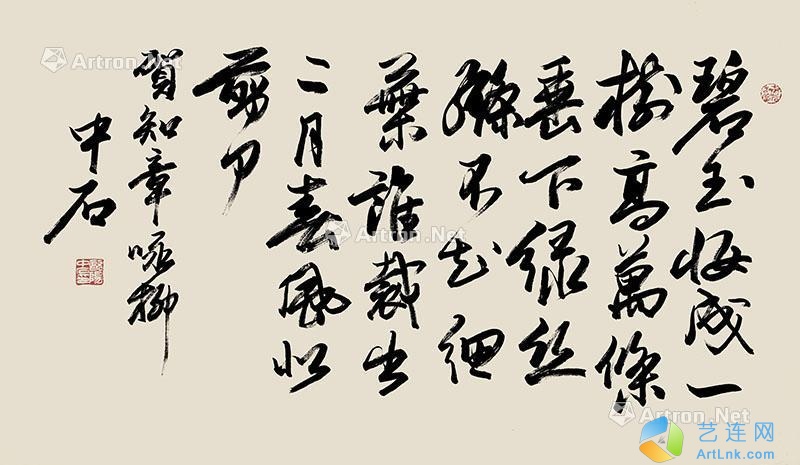 碧玉妝成一
樹高萬條
垂下绿丝
縧不知细
葉誰裁出
二月春風似
剪刀
賀知章咏柳
中石
Artron.Net
Artron.Net
Artron.Net
Artron.Net
艺连网
ArtLnk.com